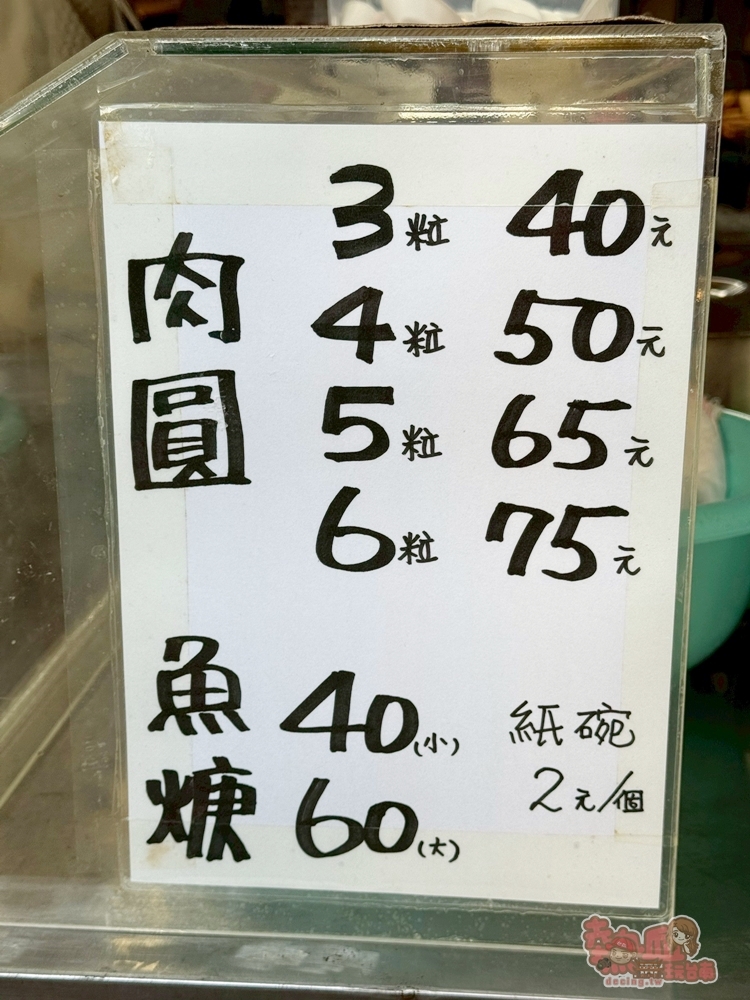 肉圓
3粒 40元
4粒 50元
5粒 65元
6粒 75元
魚焿
40(小)
60(大)
紙碗
2元/個
deeing.tw